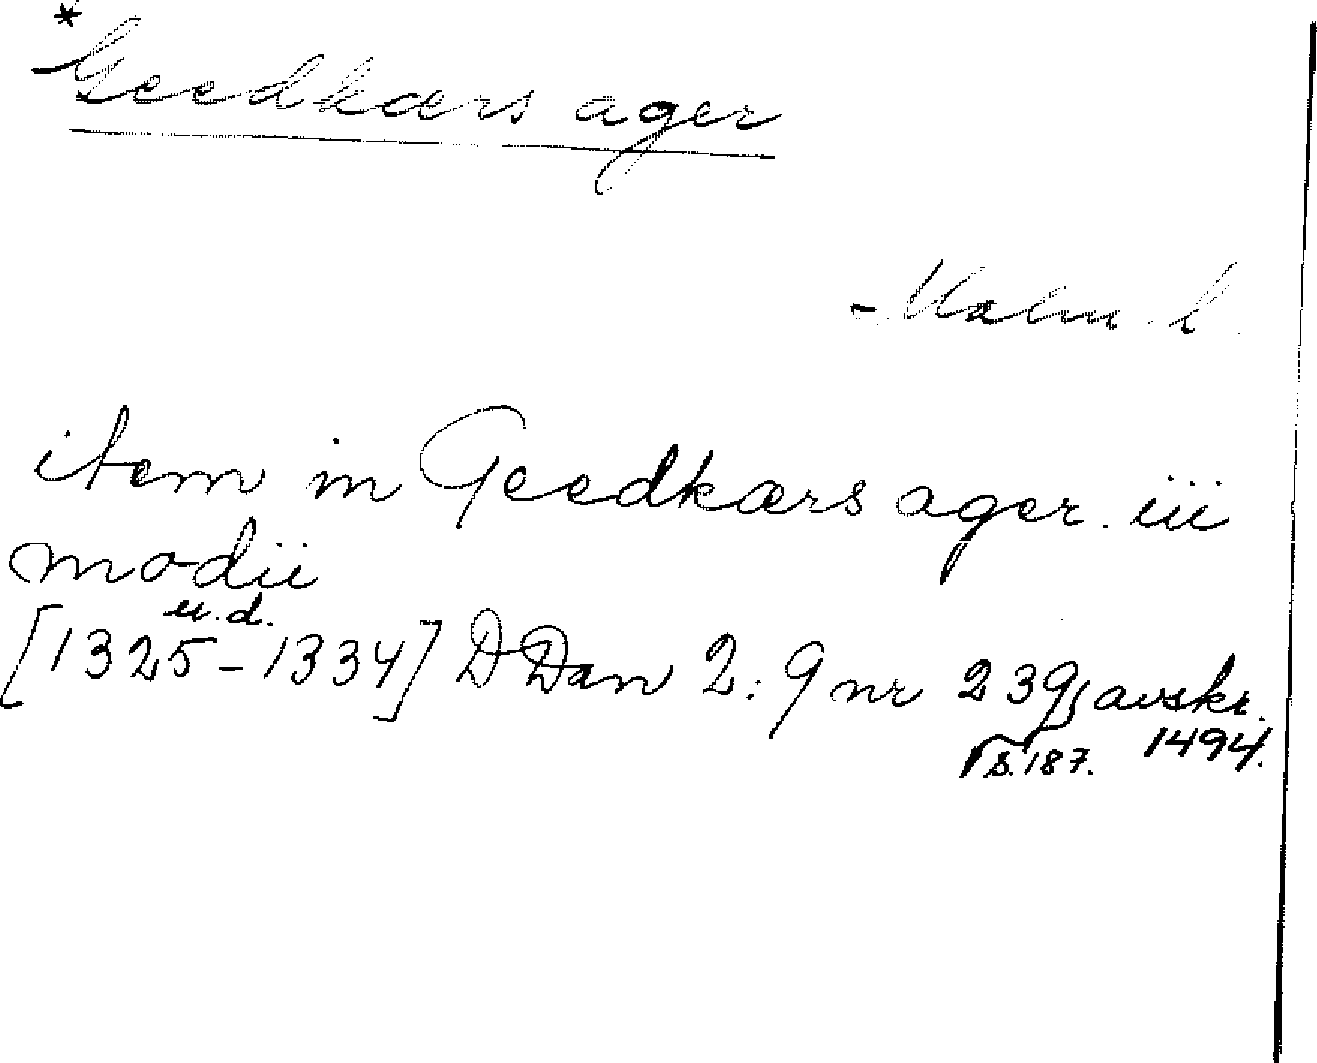 *Geedkærs ager
Malm. l.
item in Geedkærs ager. iii
modii
u.d.
[1325-1334] DDan 2:9 nr 239, avskr.
s.187. 1494.